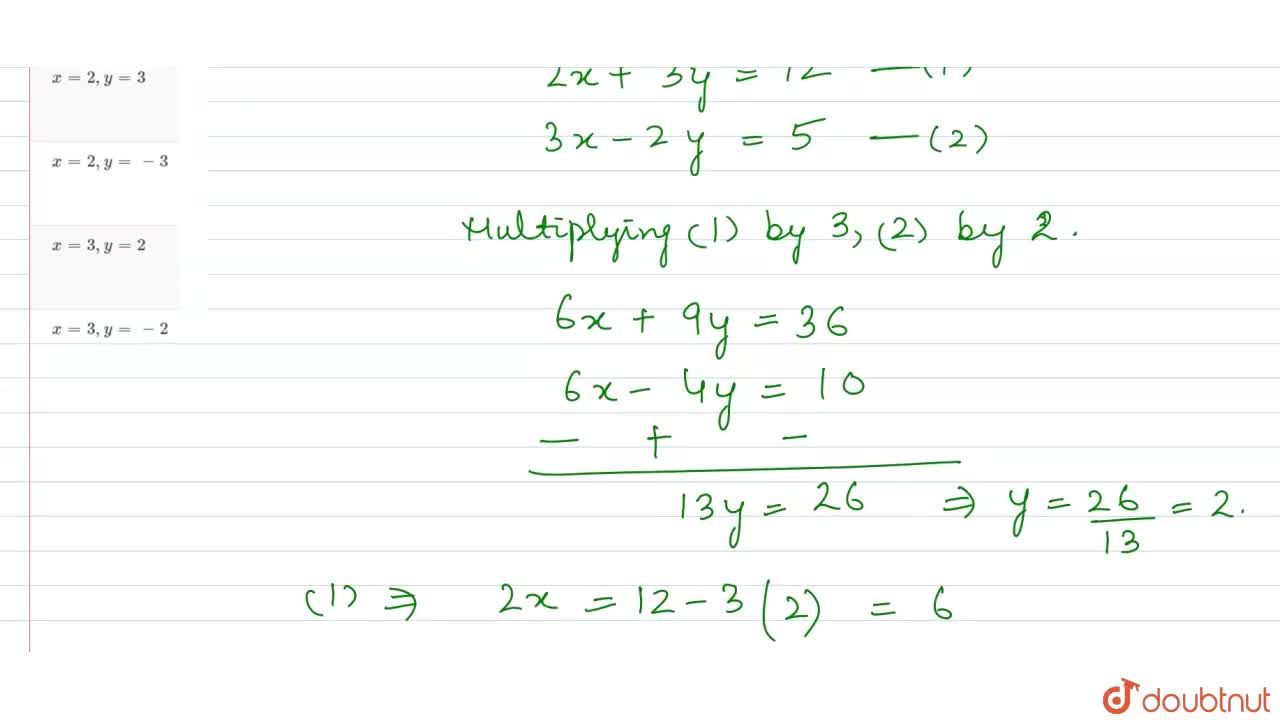 x = 2, y = 3
x = 2, y = −3
x = 3, y = 2
x = 3, y = −2
2x + 3y = 12 —(1)
3x − 2y = 5 —(2)
Multiplying (1) by 3, (2) by 2.
6x + 9y = 36
6x − 4y = 10
− + −
13y = 26 ⇒ y = 26/13 = 2.
(1) ⇒ 2x = 12 − 3(2) = 6
doubtnut